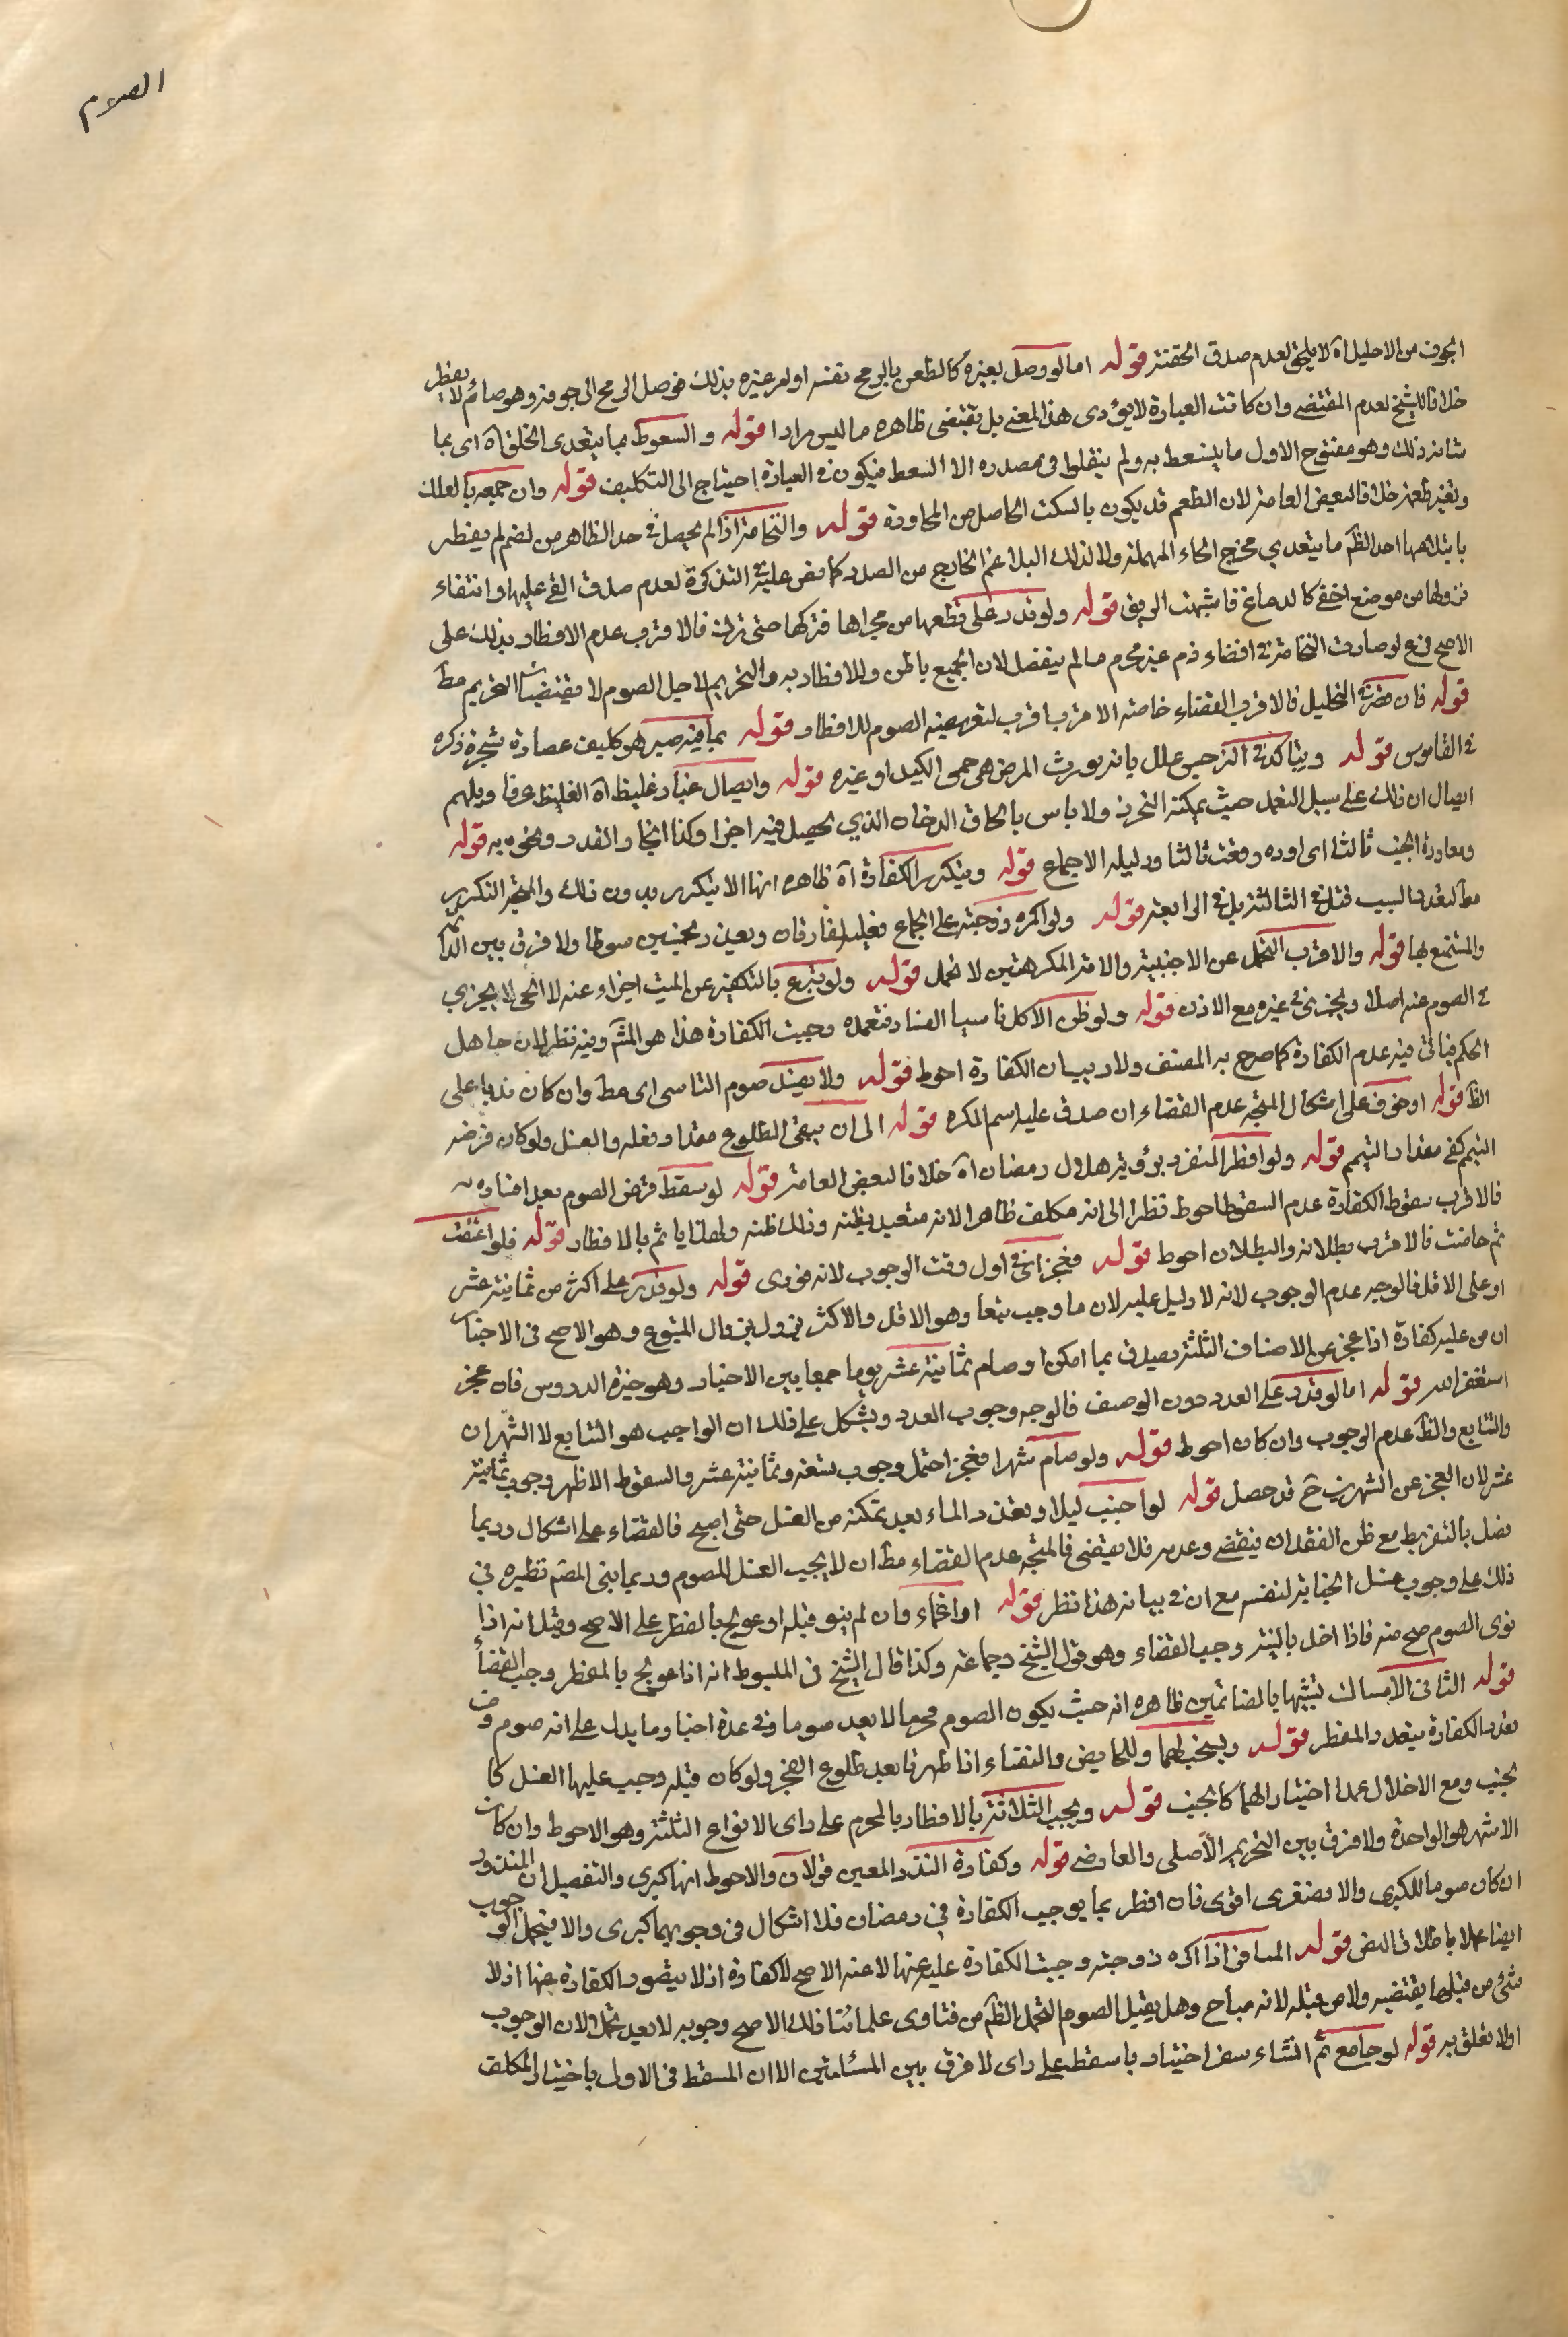 الصوم
الجوف من الاحليل اه لا يلحق لعدم صدق الحقنة قوله اما لو وصل بغيره كالطعن بالرمح نفسه او امر غيره بذلك فوصل الرمح الى جوفه وهو صائم لا يفطر
خلافا للشيخ لعدم المقتضى وان كانت العبارة لا يؤدى هذا المعنى بل يقتضى ظاهره ما ليس مرادا قوله والسعوط بما يتعدى الحلق اه اى بما
شانه ذلك وهو مفتوح الاول ما يستعط به ولم ينقلوا فى مصدره الا السعط فيكون فى العبارة احتياج الى التكليف قوله وان جمعه بالعلك
وتغير طعمه خلافا لبعض العامة لان الطعم قد يكون بالسكت الحاصل من المجاورة قوله والنخامة اذا لم يحصل فى حد الظاهر من الفم لم يفطر
بابتلاعها احد الظ ما يتعدى مخرج الحاء المهملة ولا لذلك البلاغم الخارج من الصدر كما نص عليه فى التذكرة لعدم صدق القئ عليها وانتفاء
نزولها من موضع اخفى كالدماغ فاشبهت الريق قوله ولو قدر على قطعها من مجراها فتركها حتى نزلت فالاقرب عدم الافطار بذلك على
الاصح فرع لو صارت النخامة فى افضاء فم غير محرم ما لم ينفصل لان الجميع باطن وللافطار به والتحريم لاجل الصوم لا يقتضيان التحريم مط
قوله فان صرته التخليل فالاقرب القضاء خاصة الاقرب اقرب لتعريضه الصوم للافطار قوله بما فيه صبر هو ككيف عصارة شجرة ذكره
فى القاموس قوله ويتاكد فى النرجس علل بانه يورث المرض هى حمى الكيد او غيره قوله وايصال غبار غليظ اه الغليظ عرفا ويلهم
ايصال ان ذلك على سبيل التعمد حيث يمكنه التحرز ولا باس بالحاق الدخان الذى يحصل فيه اجزا وكذا البخار والقدر ونحوه به قوله
ومعاودة الجنب ثالثا اى اوده ومغث ثالثا ودليله الاجماع قوله ويتكرر الكفارة اه ظاهره انها لا يتكرر بدون ذلك والمتجه التكرير
مط لتعدد السبب قتل فى الثالثة بل فى الرابعة قوله ولو اكره زوجته على الجماع فعليه كفارتان ويعزر بخمسين سوطا ولا فرق بين الدائم
والمستمتع بها قوله والاقرب التحمل عن الاجنبية والامة المكرهتين لا تحمل قوله ولو تبرع بالتكفير عن الميت اجزاء عنه لا الحى لا يجزى
فى الصوم عنه اصلا ويجزى فى غيره مع الاذن قوله ولو ظن الاكل ناسيا الفساد فتعمده وجبت الكفارة هذا هو المشهور وفيه نظر لان جاهل
الحكم فياتى فيه عدم الكفارة كما صرح به المصنف ولا ريب ان الكفارة احوط قوله ولا يفسد صوم الناسى اى مط وان كان ندبا على
الظ قوله او خوف على اشكال المتجه عدم القضاء ان صدق عليه اسم المكره قوله الى ان يبقى الطلوع مقدار فعله والغسل ولو كان فرضه
التيمم كفى مقدار التيمم قوله ولو افطر المنفرد برؤية هلال رمضان اه خلافا لبعض العامة قوله لو سقط فرض الصوم بعد افساده
فالاقرب سقوط الكفارة عدم السقوط احوط نظرا الى انه مكلف ظاهرا لانه متعبد بظنه وذلك ظنه ولهذا ياثم بالافطار قوله فلو اعتقت
ثم حاضت فالاقرب بطلانه والبطلان احوط قوله فعجز اى فى اول وقت الوجوب لانه فورى قوله ولو قدر على اكثر من ثمانية عشر
او على الاقل فالوجه عدم الوجوب لانه لا دليل عليه لان ما وجب تبعا وهو الاقل والاكثر يزول بزوال المتبوع وهو الاصح فى الاجتياز
ان من عليه كفارة اذا عجز عن الاصناف الثلثة يصدق بما امكن او صام ثمانية عشر يوما جمعا بين الاخبار وهو خيرة الدروس فان عجز
استغفر الله قوله اما لو قدر على العدد دون الوصف فالوجه وجوب العدد ويشكل على ذلك ان الواجب هو التتابع لا الشهران
والتتابع والظ عدم الوجوب وان كان احوط قوله ولو صام شهرا فعجز احتمل وجوب تسعة وثمانية عشر والسقوط الاظهر وجوب ثمانية
عشر لان العجز عن الشهرين ح قد حصل قوله لو اجنب ليلا وتعذر الماء بعد تمكنه من الغسل حتى اصبح فالقضاء على اشكال وربما
فضل بالتفريط مع ظن الفقدان فيقضى وعدمه فلا يقضى فالمتجه عدم القضاء مط ان لا يجب الغسل للصوم وربما بنى المصنف نظيره فى
ذلك على وجوب غسل الجنابة لنفسه مع ان فى بيانه هذا نظر قوله او اغماء وان لم ينو قبله او عولج بالفطر على الاصح وقيل انه اذا
نوى الصوم صح منه فاذا اخل بالنية وجب القضاء وهو قول الشيخ وجماعة وكذا قال الشيخ فى المبسوط انه اذا عولج بالمفطر وجب القضا
قوله الثانى الامساك تشبيها بالصائمين ظاهره انه حيث يكون الصوم محرما لا يعد صوما وفى عدة اخبار ما يدل على انه صوم وف
تعدد الكفارة بتعدد المفطر قوله ويستحب لهما وللحايض والنفساء اذا طهرتا بعد طلوع الفجر ولو كان قبله وجب عليها الغسل كا
لجنب ومع الاخلال عمدا اختيار الهما كالجنب قوله ويجب الثلاثة بالافطار بالمحرم على راى الانواع الثلثة وهو الاحوط وان كان
الاشهر هو الواحدة ولا فرق بين التحريم الاصلى والعارضى قوله وكفارة النذر المعين قولان والاحوط انها كبرى والتفصيل ان المنذور
ان كان صوما للكبرى والا فصغرى اقوى فان افطر بما يوجب الكفارة فى رمضان فلا اشكال فى وجوبهما كبرى والا فيحمل الوجوب
ايضا عملا باطلاق النص قوله المسافر اذا اكره زوجته وجبت الكفارة عليه عنها لا عنه الاصح لا كفارة اذ لا يتصور الكفارة عنها اذ لا
شئ من قبلها يقتضيه ولا من قبله لانه مباح وهل يقبل الصوم التحمل الظ من فتاوى علمائنا ذلك الاصح وجوبه لا بعد تحمل لان الوجوب
اولا تعلق به قوله لو جامع ثم انشاء سفرا اختيارا سقط على راى لا فرق بين المسئلتين الا ان المسقط فى الاول باختيار المكلف